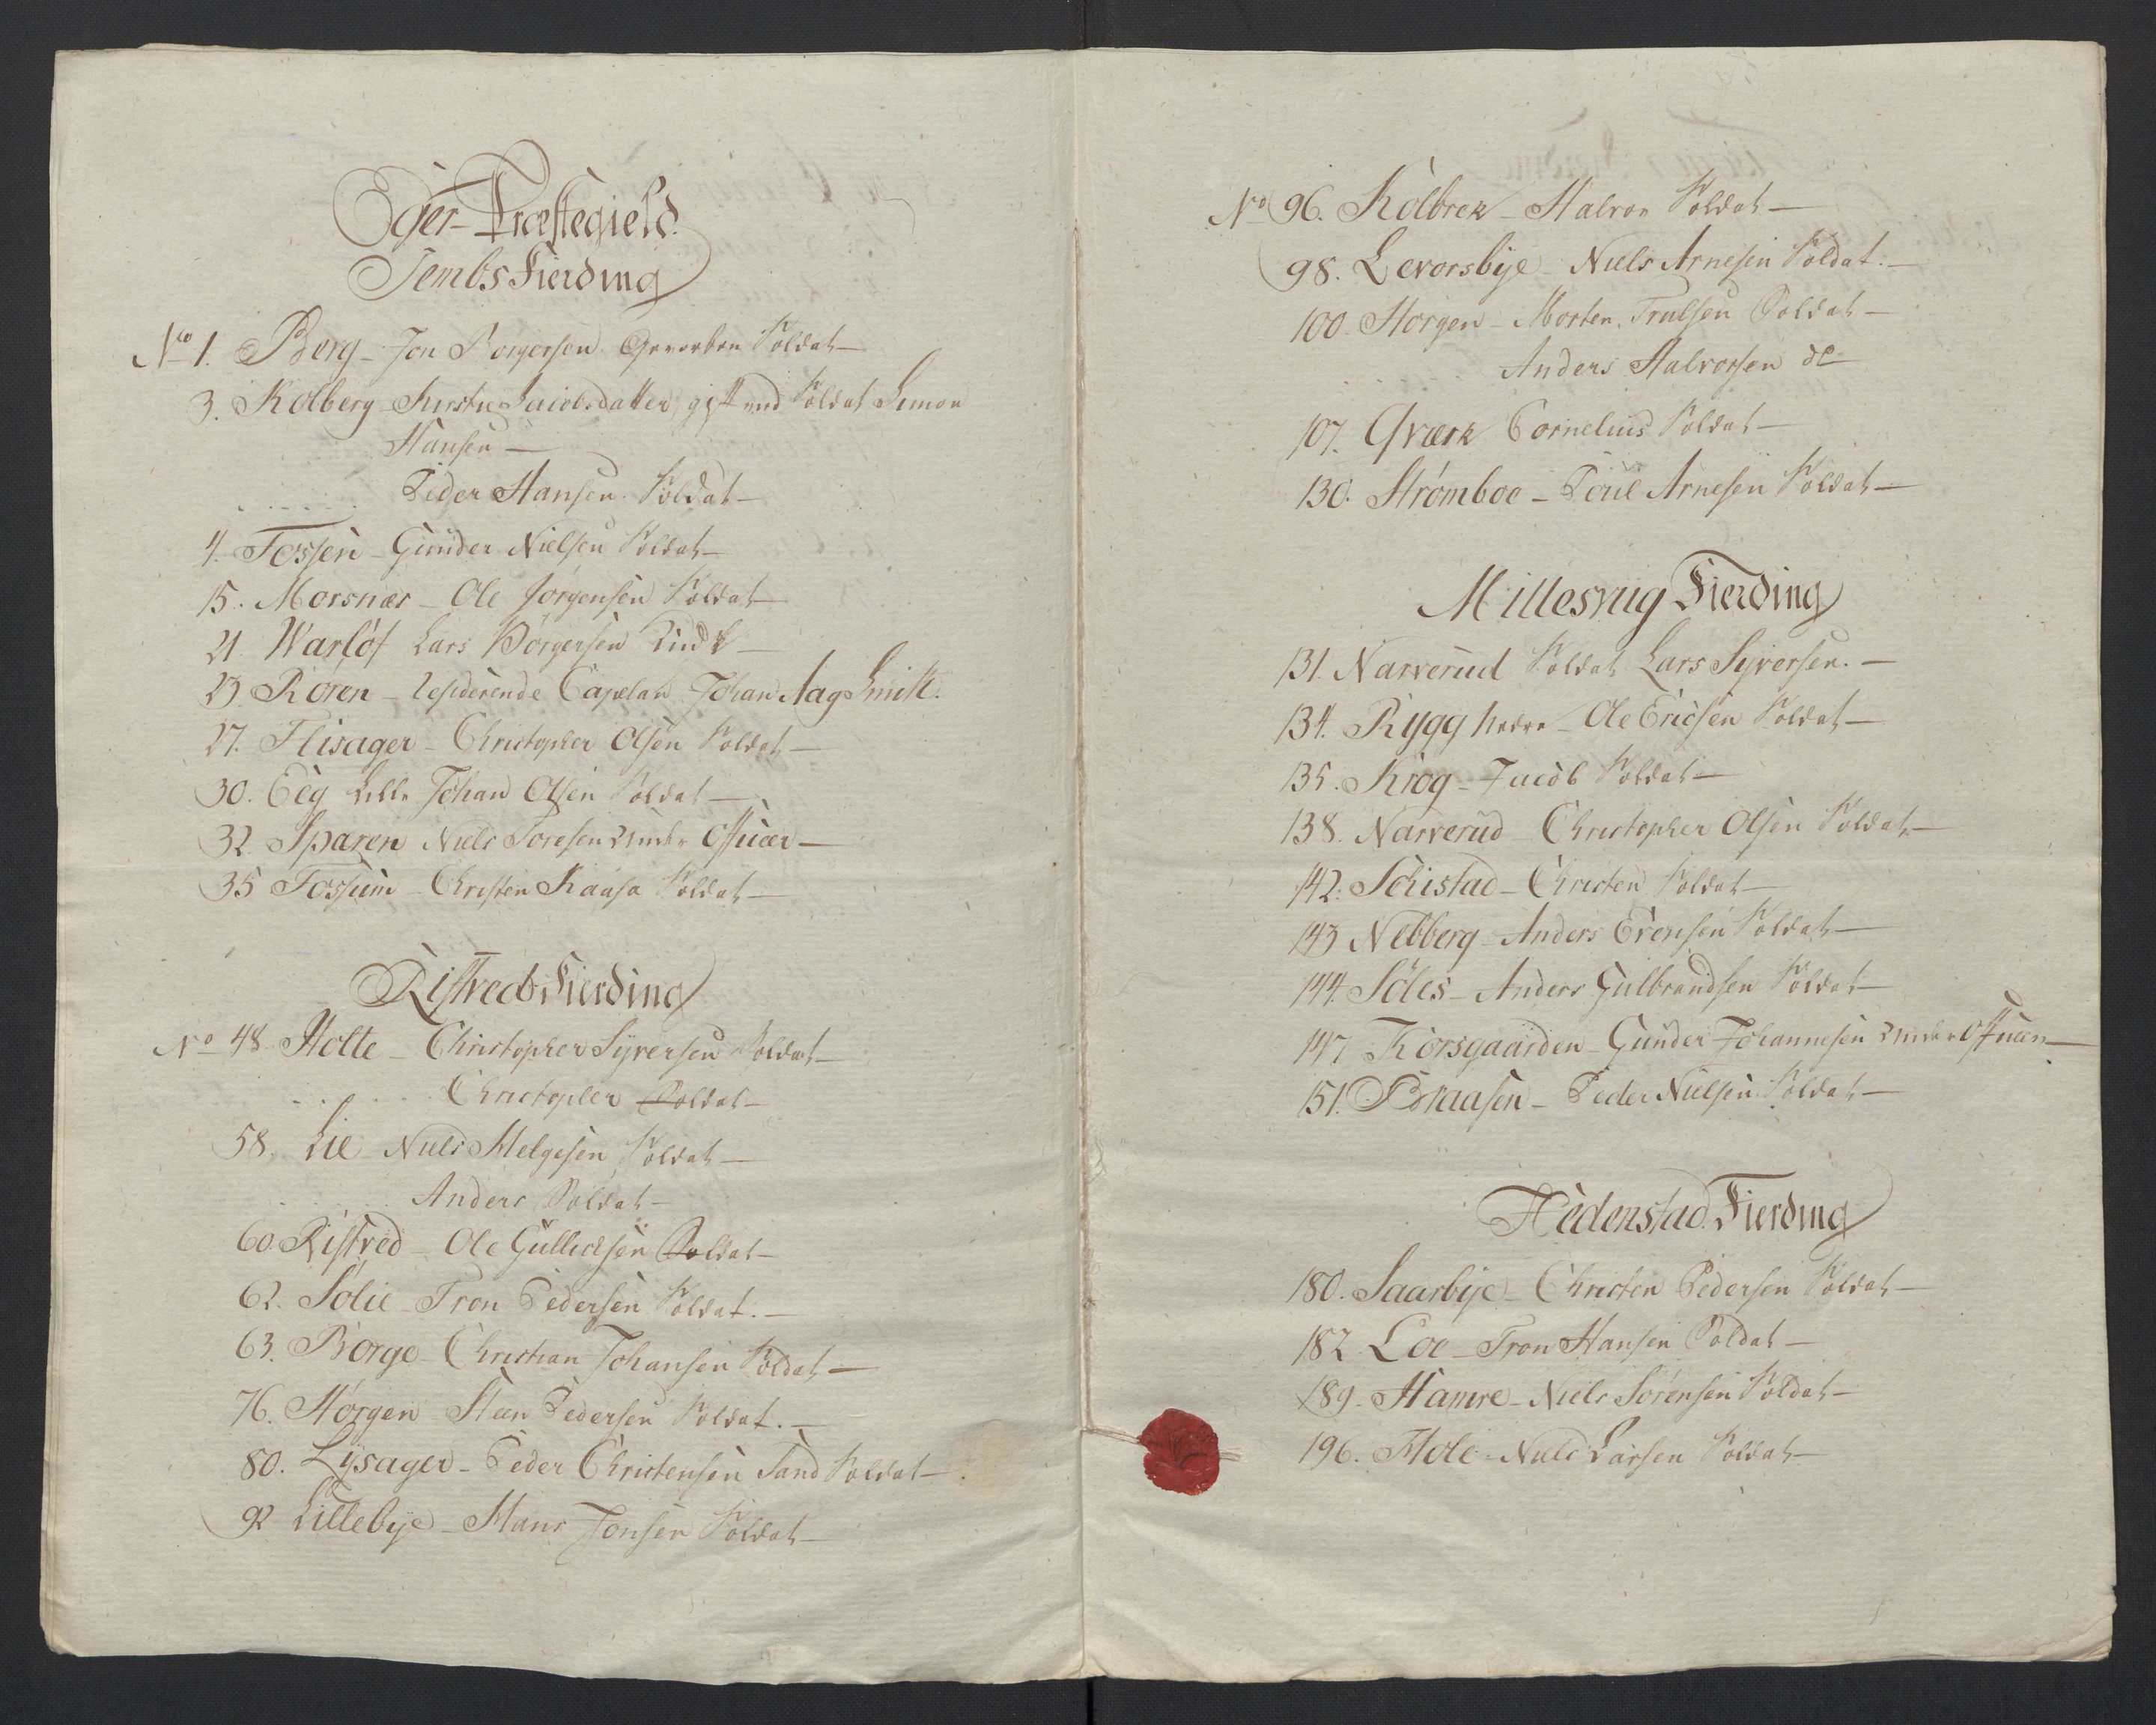 Eger Præstegield
Sembs Fierding
No 1. Berg – Jon Borgersen Gevorben Soldat –
3. Kolberg – Kirstie Jacobsdatter gift med Soldat Simon
Hansen –
Peder Hansen Soldat –
4. Fossen – Gunder Nielsen Soldat –
15. Morsnær – Ole Jørgensen Soldat –
21. Warløf Lars Børgersen
23 Røren – residerende Capelan Johan Aag Smith.
27. Flisager – Christopher Olsen Soldat –
30. Eeg Lille Johan Olsen Soldat –
32 Sparen Niels Toresen Under Officer –
35 Fossum – Christen Kaasa Soldat –
Ristved Fierding
No 48 Holte – Christopher Syversen Soldat –
Christopher Soldat –
58. Lie Niels Helgesen Soldat –
Anders Soldat –
60. Ristved – Ole Gullichsen Soldat –
62. Sølie – Tron Pedersen Soldat. –
63. Borge – Christian Johansen Soldat –
76. Hørgen Hans Pedersen Soldat. –
80. Lysager – Peder Christensen Sand Soldat –
92 Lillebye – Hans Jonsen Soldat –
No 96. Kolbrek – Halvor Soldat –
98. Levorsbye – Niels Arnesen Soldat. –
100. Horgen – Morten Trulsen Soldat –
Anders Halvorsen do
107. Qværk Cornelius Soldat –
130. Strømboe – Poul Arnesen Soldat –
Millesvug Fierding
131. Narverud Soldat Lars Syversen. –
134. Rygg Nedre – Ole Ericsen Soldat –
135. Krog – Jacob Soldat –
138. Narverud – Christopher Olsen Soldat –
142. Schistad – Christen Soldat –
143 Nebberg – Anders Evensen Soldat –
144. Søles – Anders Gulbrandsen Soldat –
147. Korsgaarden – Gunder Johannesen Under Officer –
151. Braasen – Peder Nielsen Soldat –
Hedenstad Fierding
180. Saarbye – Christen Pedersen Soldat –
182 Loe – Tron Hansen Soldat –
189. Hamre – Niels Sørensen Soldat –
196. Hole – Niels Larsen Soldat –